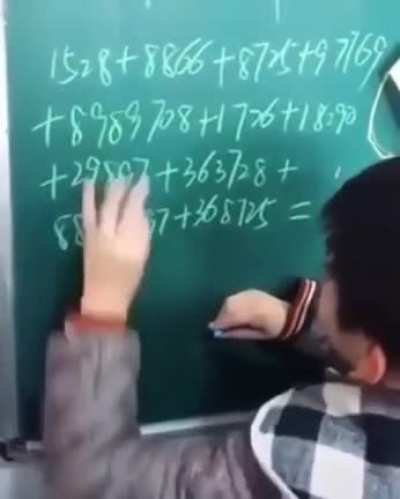 1528+8866+8725+97769
+8989708+1726+18290
+29897+363728+
+368725=